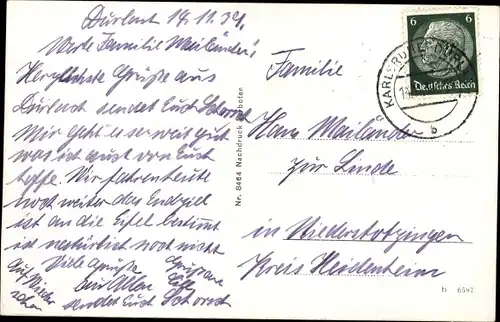 Durlach 19.11.39.
Werte Familie Mailänder!
Herzlichste Grüße aus
Durlach sendet Euch Schorsch
Mir geht es sehr gut
was ich auch von Euch
hoffe. Wir fahren heute
noch weiter das Endziel
ist an die Eifel bestimmt
ist natürlich noch nicht
Viele Grüße
Auf Wieder an Alle
sehn sendet Euch Schorsch
Familie
Hans Mailänder
zur Linde
in Niederstotzingen
Kreis Heidenheim
Nr. 8464 Nachdruck verboten
h 6597
6 6
Deutsches Reich
KARLSRUHE-DURLACH
b